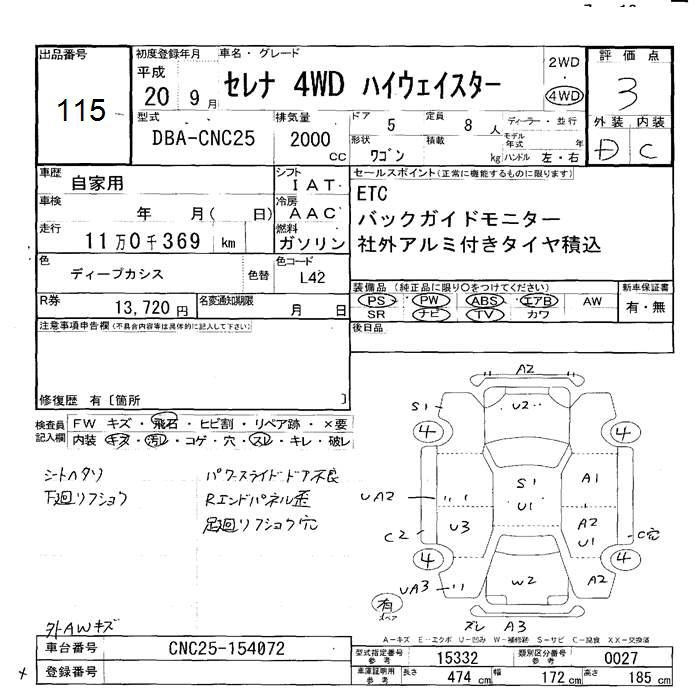 出品番号
115
初度登録年月
平成
20 9月
車名・グレード
セレナ 4WD ハイウェイスター
2WD
・
4WD
評価点
3
型式
DBA-CNC25
排気量
2000
cc
ドア
5
定員
8人
ディーラー・並行
形状
ワゴン
積載
kg
モデル年式
年
ハンドル 左・右
外装 内装
D C
車歴
自家用
シフト
IAT
セールスポイント(正常に機能するものに限ります)
ETC
バックガイドモニター
社外アルミ付きタイヤ積込
車検
年 月( 日)
冷房
AAC
走行
11万0千369 km
燃料
ガソリン
色
ディープカシス
色替
色コード
L42
装備品 (純正品に限り○をつけてください)
新車保証書
PS PW ABS エアB AW
有・無
SR ナビ TV カワ
R券
13,720円
名変通知期限
月 日
後日品
注意事項申告欄(不具合内容等は具体的に記入して下さい)
修復歴 有〔箇所 〕
検査員
記入欄
FW キズ・飛石・ヒビ割・リペア跡・×要
内装 キズ・汚レ・コゲ・穴・スレ・キレ・破レ
シートヘタリ
下廻リフショク
パワースライドドア不良
Rエンドパネル歪
足廻リフショク穴
外AWキズ
A2
S1
U2
4
4
UA2
S1
U1
A1
C2
U3
A2
U1
C穴
4
4
UA3
W2
A2
有
スペア
ズレ A3
A-キズ E-エクボ U-凹み W-補修跡 S-サビ C-腐食 XX-交換済
車台番号
CNC25-154072
登録番号
型式指定番号
参考
15332
類別区分番号
参考
0027
車庫証明用
参考
長さ
474 cm
幅
172 cm
高さ
185 cm